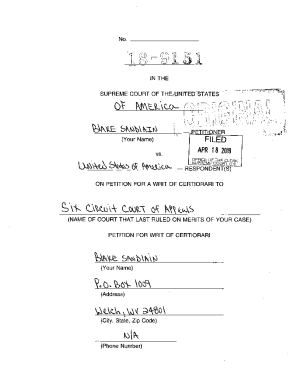 No.
18-9151
IN THE
SUPREME COURT OF THE UNITED STATES
OF America
ORIGINAL
Blake Sandlain — PETITIONER
(Your Name)
FILED
APR 18 2019
OFFICE OF THE CLERK
SUPREME COURT, U.S.
vs.
United States of America — RESPONDENT(S)
ON PETITION FOR A WRIT OF CERTIORARI TO
Six Circuit Court of Appeals
(NAME OF COURT THAT LAST RULED ON MERITS OF YOUR CASE)
PETITION FOR WRIT OF CERTIORARI
Blake Sandlain
(Your Name)
P.O. Box 1009
(Address)
Welch, WV 24801
(City, State, Zip Code)
N/A
(Phone Number)